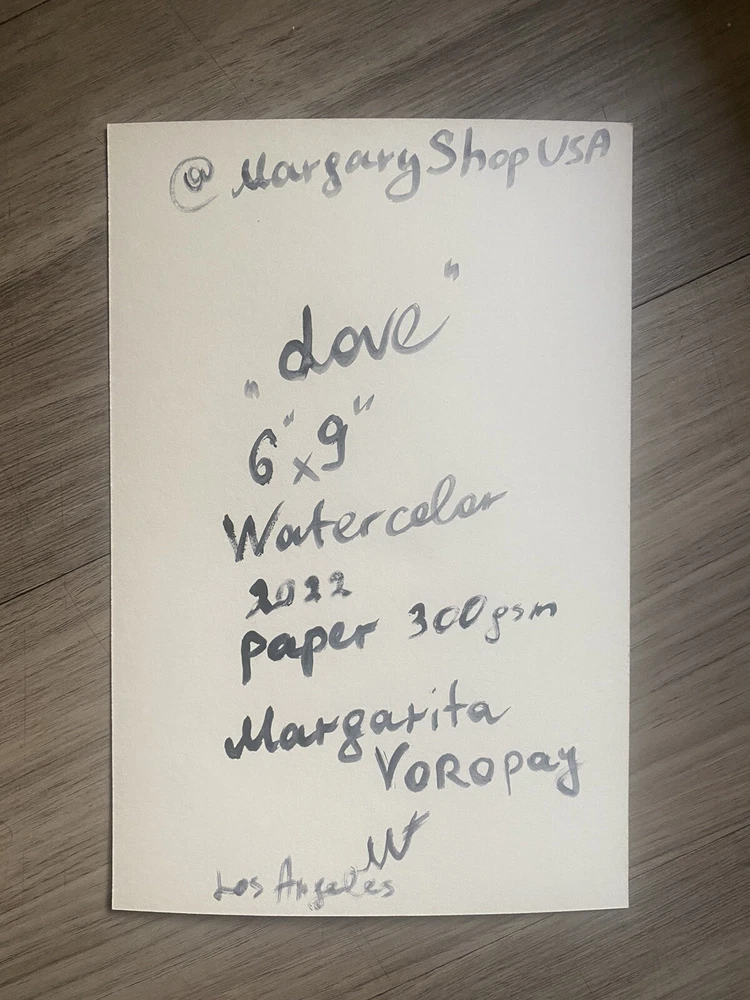 @MargaryShopUSA
„Love"
6"x9"
Watercolor
2022
paper 300gsm
Margarita
Voropay
Los Angeles